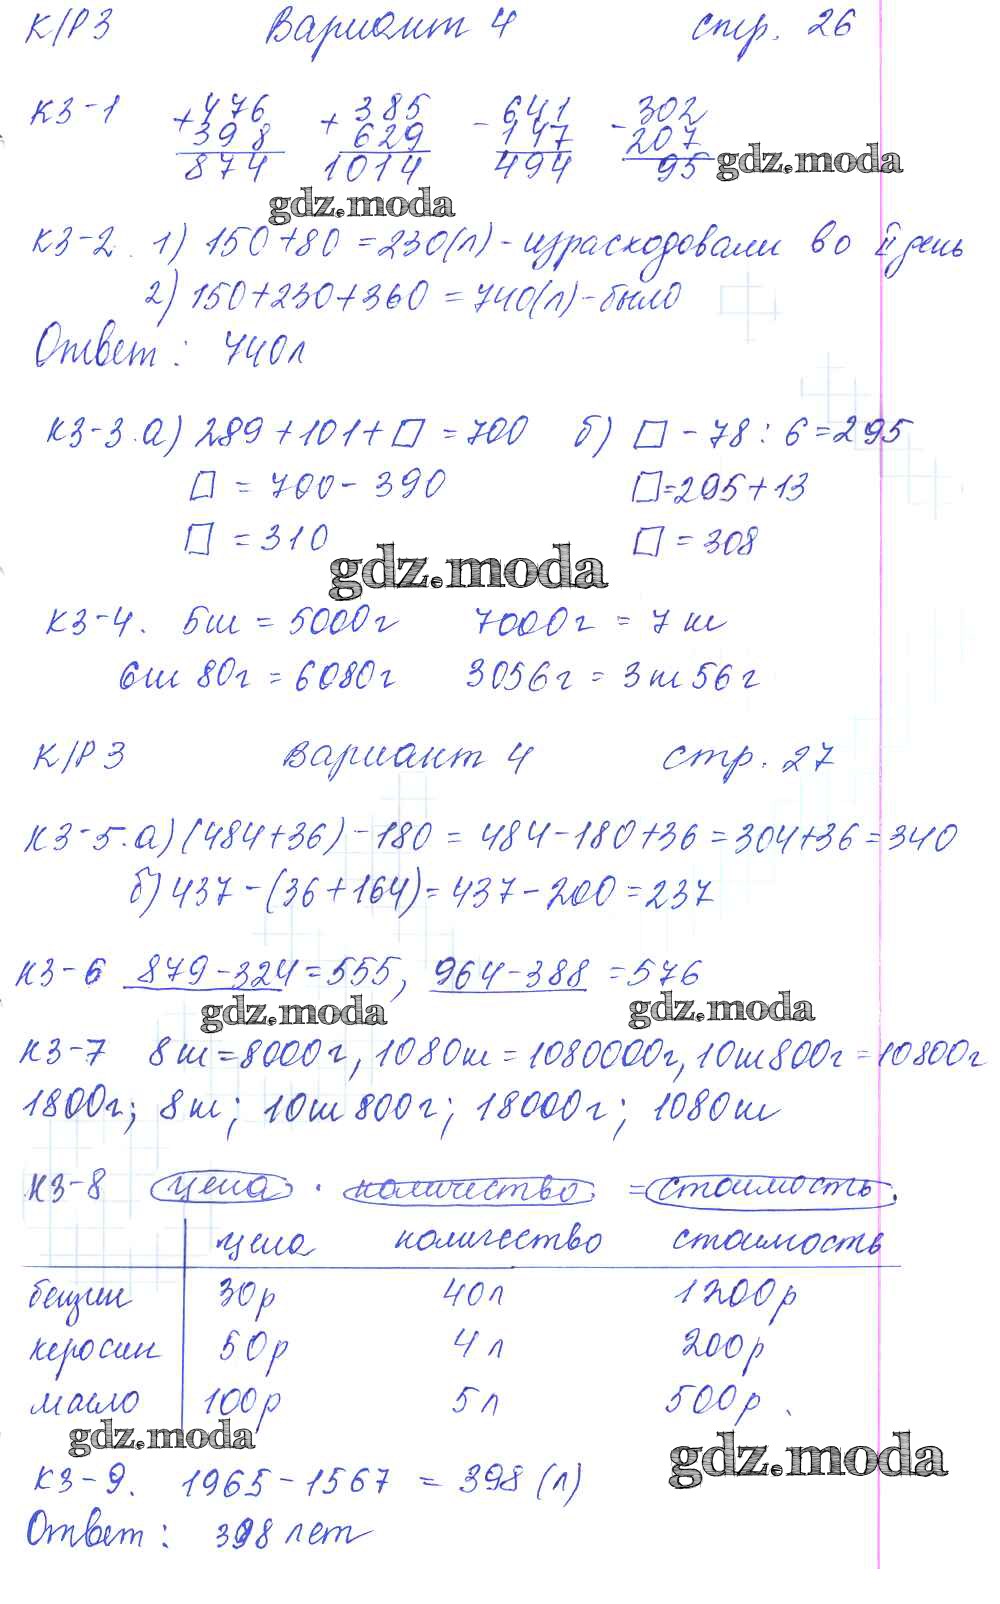 К/Р 3 Вариант 4 стр. 26
К3-1 +476 +385 -641 -302
398 629 147 207
874 1014 494 95 gdz.moda
gdz.moda
К3-2. 1) 150+80=230(л)-израсходовали во II день
2) 150+230+360=740(л)-было
Ответ: 740л
К3-3.а) 289+101+□=700 б) □-78:6=295
□=700-390 □=295+13
□=310 □=308
gdz.moda
К3-4. 5т=5000г 7000г=7т
6т 80г=6080г 3056г=3т 56г
К/Р 3 Вариант 4 стр. 27
К3-5.а)(484+36)-180=484-180+36=304+36=340
б)437-(36+164)=437-200=237
К3-6 879-324=555, 964-388=576
gdz.moda gdz.moda
К3-7 8т=8000г, 1080т=1080000г, 10т800г=10800г
1800г; 8т; 10т 800г; 18000г; 1080т
К3-8 цена · количество = стоимость.
цена количество стоимость
бензин 30р 40л 1200р
керосин 50р 4л 200р
масло 100р 5л 500р.
gdz.moda gdz.moda
К3-9. 1965-1567=398(л)
Ответ: 398 лет